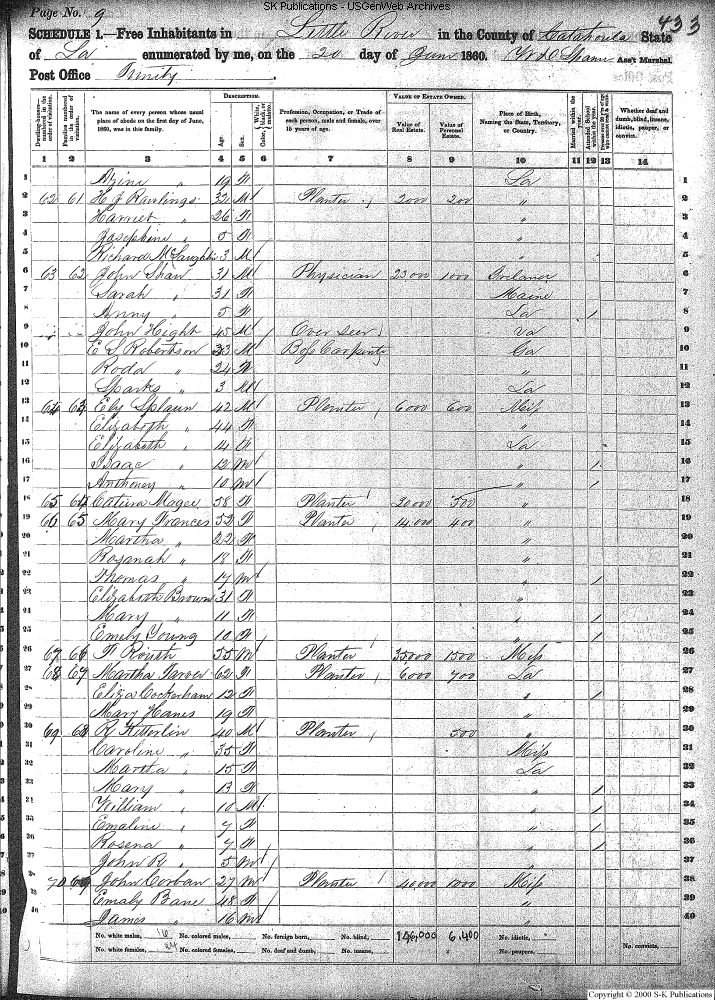 SK Publications - USGenWeb Archives
Page No. 9
433
SCHEDULE 1.—Free Inhabitants in Little River in the County of Catahoula State
of La enumerated by me, on the 20 day of June 1860. Ass't Marshal.
Post Office Trinity.
Dwelling-houses— numbered in the order of visitation.
Families numbered in the order of visitation.
The name of every person whose usual place of abode on the first day of June, 1860, was in this family.
DESCRIPTION.
Age.
Sex.
Color, White, black, or mulatto.
Profession, Occupation, or Trade of each person, male and female, over 15 years of age.
VALUE OF ESTATE OWNED.
Value of Real Estate.
Value of Personal Estate.
Place of Birth, Naming the State, Territory, or Country.
Married within the year.
Attended School within the year.
Whether deaf and dumb, blind, insane, idiotic, pauper, or convict.
1 2 3 4 5 6 7 8 9 10 11 12 13 14
1 " 19 F La 1
2 62 61 H J Rawlings 32 M Planter 2000 200 " 2
3 Harriet " 26 F " 3
4 Josephine " 5 F " 4
5 Richard McLaughlin 3 M " 5
6 63 62 John Swan 31 M Physician 23000 1000 6
7 Sarah " 31 F Maine 7
8 Anny " 5 F La / 8
9 John Hight 45 M Over seer Va 9
10 E S Robertson 33 M Bos Carpenter Ga 10
11 Roda " 24 F " 11
12 Sparks " 3 M La 12
13 64 63 Ely Splaun 42 M Planter 6000 600 Miss 13
14 Elizabeth " 44 F " 14
15 Elizabeth " 14 F La 15
16 Isaac " 12 M " / 16
17 Anthoney " 10 M " / 17
18 65 64 Magee 58 F Planter 20000 500 " 18
19 66 65 Mary Frances 52 F Planter 14000 400 " 19
20 Martha " 22 F " 20
21 Rosanah " 18 F " 21
22 Thomas " 17 M " / 22
23 Elizabeth Brown 31 F " 23
24 Mary " 11 F " / 24
25 Emily Young 10 F " / 25
26 67 66 Routh 55 M Planter 35000 1500 Miss 26
27 68 67 Martha Tarver 62 F Planter 6000 700 La 27
28 Eliza Cockerham 12 F " / 28
29 Mary Hanes 19 F " 29
30 69 68 R Kitterlin 40 M Planter 500 " 30
31 Caroline " 35 F Miss 31
32 Martha " 15 F La 32
33 Mary " 13 F " / 33
34 William " 10 M " / 34
35 Emaline " 7 F " / 35
36 Rosena " 7 F " / 36
37 John R " 5 M " 37
38 70 69 John Corban 27 M Planter 40000 1000 Miss 38
39 Emaly Bane 48 F " 39
40 James " 16 M " 40
No. white males, 16 No. colored males, No. foreign born, No. blind, 146,000 6,400 No. idiotic,
No. white females, 24 No. colored females, No. deaf and dumb, No. insane, No. paupers, No. convicts,
Copyright © 2000 S-K Publications